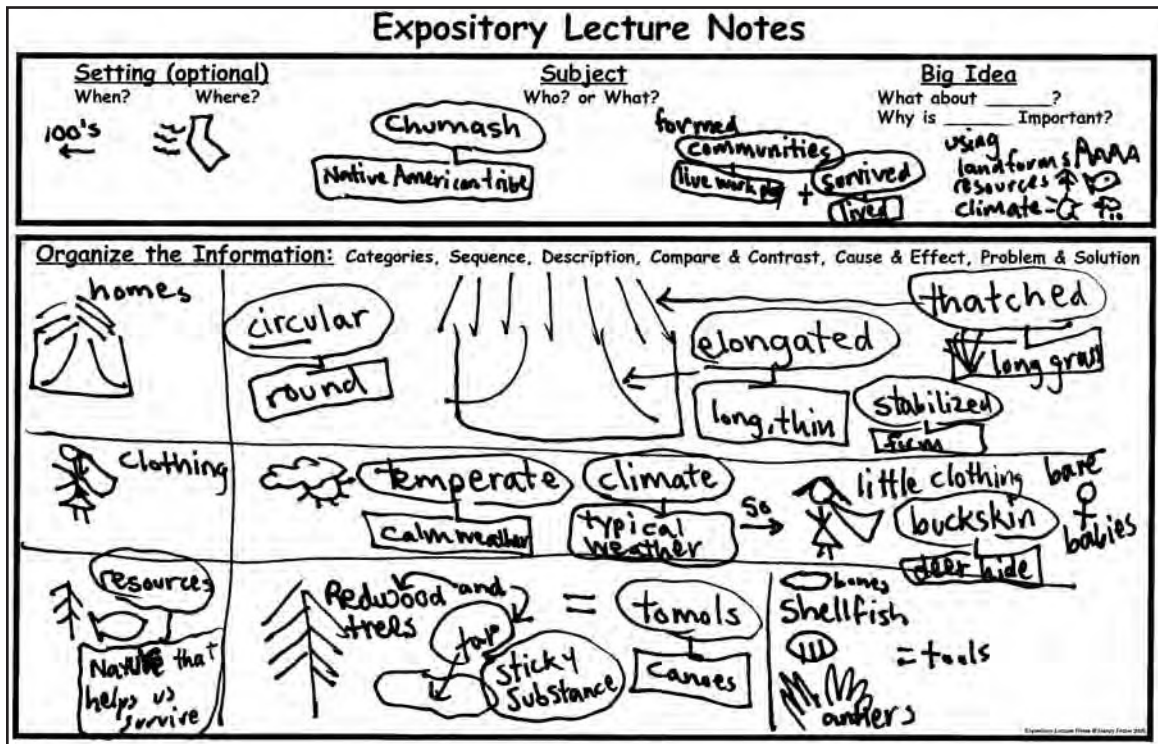 Expository Lecture Notes
Setting (optional)
When? Where?
100's
Subject
Who? or What?
Chumash
Native American tribe
Big Idea
What about ______?
Why is ______ Important?
formed
communities
live work play
+
survived
lived
using
landforms
resources
climate =
Organize the Information: Categories, Sequence, Description, Compare & Contrast, Cause & Effect, Problem & Solution
homes
circular
round
elongated
long, thin
thatched
long grass
stabilized
firm
clothing
temperate
calm weather
climate
typical
weather
so
little clothing
buckskin
deer hide
bare
babies
resources
Nature that
helps us
survive
Redwood and
trees
tar
sticky
substance
=
tomols
canoes
bones
Shellfish
= tools
antlers